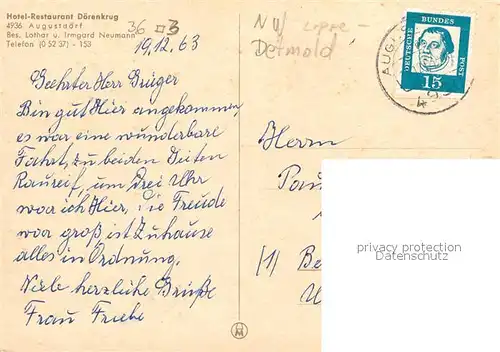 Hotel-Restaurant Dörenkrug
4936 Augustdorf
Bes. Lothar u. Irmgard Neumann
Telefon (0 52 37) - 153
36
19.12.63
Geehrter Herr Krüger
Bin gut Hier angekommen
es war eine wunderbare
Fahrt, zu beiden Seiten
Raureif, um Drei Uhr
war ich Hier, die Freude
war groß ist Zuhause
alles in Ordnung.
Viele herzliche Grüße
Frau Friebe
Detmold
DEUTSCHE BUNDESPOST
15
AUGU
Herrn
Pau
(1) Be
privacy protection
Datenschutz